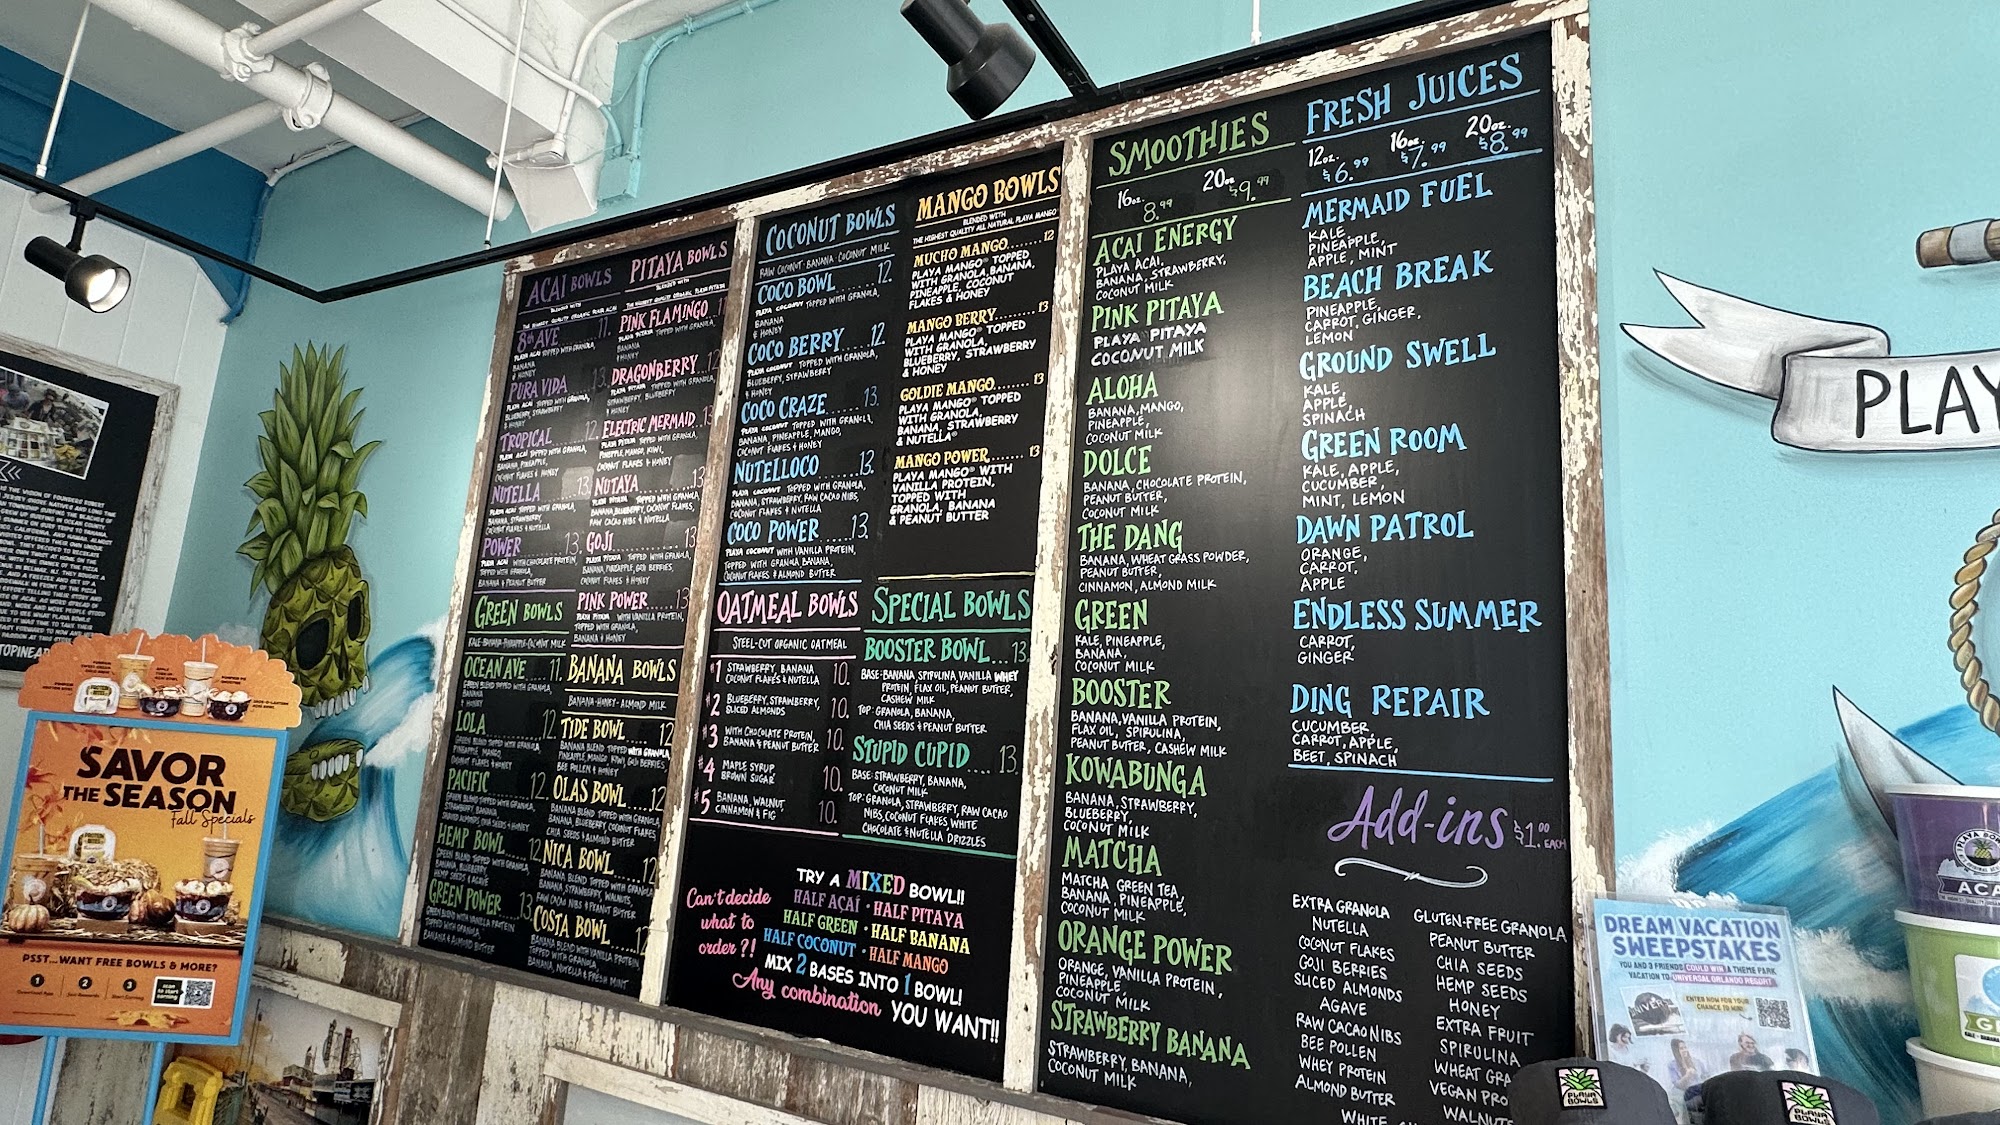 ACAI BOWLS
BLENDED WITH
THE HIGHEST QUALITY ORGANIC PLAYA ACAI
8th AVE 11.
PLAYA ACAI TOPPED WITH GRANOLA,
BANANA
& HONEY
PURA VIDA 13.
PLAYA ACAI TOPPED WITH GRANOLA,
BLUEBERRY, STRAWBERRY
& HONEY
TROPICAL 12.
PLAYA ACAI TOPPED WITH GRANOLA,
BANANA, PINEAPPLE,
COCONUT FLAKES & HONEY
NUTELLA 13
PLAYA ACAI TOPPED WITH GRANOLA,
BANANA, STRAWBERRY,
COCONUT FLAKES & NUTELLA
POWER 13.
PLAYA ACAI WITH CHOCOLATE PROTEIN,
TOPPED WITH GRANOLA,
BANANA & PEANUT BUTTER
PITAYA BOWLS
BLENDED WITH
THE HIGHEST QUALITY ORGANIC PLAYA PITAYA
PINK FLAMINGO 11
PLAYA PITAYA TOPPED WITH GRANOLA,
BANANA
& HONEY
DRAGONBERRY 12
PLAYA PITAYA TOPPED WITH GRANOLA,
STRAWBERRY, BLUEBERRY
& HONEY
ELECTRIC MERMAID 13
PLAYA PITAYA TOPPED WITH GRANOLA,
PINEAPPLE, MANGO, KIWI,
COCONUT FLAKES & HONEY
NUTAYA 13
PLAYA PITAYA TOPPED WITH GRANOLA,
BANANA, BLUEBERRY, COCONUT FLAKES,
RAW CACAO NIBS & NUTELLA
GOJI 13
PLAYA PITAYA TOPPED WITH GRANOLA,
BANANA, PINEAPPLE, GOJI BERRIES,
COCONUT FLAKES & HONEY
PINK POWER 13
PLAYA PITAYA WITH VANILLA PROTEIN,
TOPPED WITH GRANOLA,
BANANA & HONEY
GREEN BOWLS
KALE-BANANA-PINEAPPLE-COCONUT MILK
OCEAN AVE 11.
GREEN BLEND TOPPED WITH GRANOLA,
BANANA
& HONEY
LOLA 12.
GREEN BLEND TOPPED WITH GRANOLA,
PINEAPPLE, MANGO,
COCONUT FLAKES & HONEY
PACIFIC 12.
GREEN BLEND TOPPED WITH GRANOLA,
STRAWBERRY, BANANA,
SHAVED ALMONDS & HONEY
HEMP BOWL 12.
GREEN BLEND TOPPED WITH GRANOLA,
BANANA, BLUEBERRY,
HEMP SEEDS & AGAVE
GREEN POWER 13.
GREEN BLEND WITH VANILLA PROTEIN
TOPPED WITH GRANOLA,
BANANA & ALMOND BUTTER
BANANA BOWLS
BANANA-HONEY-ALMOND MILK
TIDE BOWL 12
BANANA BLEND TOPPED WITH GRANOLA,
PINEAPPLE, MANGO, KIWI, GOJI BERRIES,
BEE POLLEN & HONEY
OLAS BOWL 12
BANANA BLEND TOPPED WITH GRANOLA,
BANANA, BLUEBERRY, COCONUT FLAKES,
CHIA SEEDS & ALMOND BUTTER
NICA BOWL 12
BANANA BLEND TOPPED WITH GRANOLA,
BANANA, STRAWBERRY, WALNUTS,
RAW CACAO NIBS & PEANUT BUTTER
COSTA BOWL 12
BANANA BLEND WITH VANILLA PROTEIN
TOPPED WITH GRANOLA,
BANANA, NUTELLA & FRESH MINT
COCONUT BOWLS
RAW COCONUT · BANANA · COCONUT MILK
COCO BOWL 12.
PLAYA COCONUT TOPPED WITH GRANOLA,
BANANA
& HONEY
COCO BERRY 12.
PLAYA COCONUT TOPPED WITH GRANOLA,
BLUEBERRY, STRAWBERRY
& HONEY
COCO CRAZE 13.
PLAYA COCONUT TOPPED WITH GRANOLA,
BANANA, PINEAPPLE, MANGO,
COCONUT FLAKES & HONEY
NUTELLOCO 13.
PLAYA COCONUT TOPPED WITH GRANOLA,
BANANA, STRAWBERRY, RAW CACAO NIBS,
COCONUT FLAKES & NUTELLA
COCO POWER 13.
PLAYA COCONUT WITH VANILLA PROTEIN,
TOPPED WITH GRANOLA, BANANA,
COCONUT FLAKES & ALMOND BUTTER
MANGO BOWLS
BLENDED WITH
THE HIGHEST QUALITY ALL NATURAL PLAYA MANGO
MUCHO MANGO........ 12
PLAYA MANGO® TOPPED
WITH GRANOLA, BANANA,
PINEAPPLE, COCONUT
FLAKES & HONEY
MANGO BERRY......... 13
PLAYA MANGO® TOPPED
WITH GRANOLA,
BLUEBERRY, STRAWBERRY
& HONEY
GOLDIE MANGO........ 13
PLAYA MANGO® TOPPED
WITH GRANOLA,
BANANA, STRAWBERRY
& NUTELLA®
MANGO POWER........ 13
PLAYA MANGO® WITH
VANILLA PROTEIN,
TOPPED WITH
GRANOLA, BANANA
& PEANUT BUTTER
OATMEAL BOWLS
STEEL-CUT ORGANIC OATMEAL
#1 STRAWBERRY, BANANA 10.
COCONUT FLAKES & NUTELLA
#2 BLUEBERRY, STRAWBERRY, 10.
SLICED ALMONDS
#3 WITH CHOCOLATE PROTEIN, 10.
BANANA & PEANUT BUTTER
#4 MAPLE SYRUP 10.
BROWN SUGAR
#5 BANANA, WALNUT 10.
CINNAMON & FIG
SPECIAL BOWLS
BOOSTER BOWL...13
BASE: BANANA, SPIRULINA, VANILLA WHEY
PROTEIN, FLAX OIL, PEANUT BUTTER,
CASHEW MILK
TOP: GRANOLA, BANANA,
CHIA SEEDS & PEANUT BUTTER
STUPID CUPID.... 13
BASE: STRAWBERRY, BANANA,
COCONUT MILK
TOP: GRANOLA, STRAWBERRY, RAW CACAO
NIBS, COCONUT FLAKES WHITE
CHOCOLATE & NUTELLA DRIZZLES
Can't decide
what to
order?!
TRY A MIXED BOWL!!
HALF AÇAÍ · HALF PITAYA
HALF GREEN · HALF BANANA
HALF COCONUT · HALF MANGO
MIX 2 BASES INTO 1 BOWL!
Any combination YOU WANT!!
SMOOTHIES
16oz. 20oz
8.99 $9.99
ACAI ENERGY
PLAYA ACAI,
BANANA, STRAWBERRY,
COCONUT MILK
PINK PITAYA
PLAYA PITAYA
COCONUT MILK
ALOHA
BANANA, MANGO,
PINEAPPLE,
COCONUT MILK
DOLCE
BANANA, CHOCOLATE PROTEIN,
PEANUT BUTTER,
COCONUT MILK
THE DANG
BANANA, WHEAT GRASS POWDER,
PEANUT BUTTER,
CINNAMON, ALMOND MILK
GREEN
KALE, PINEAPPLE,
BANANA,
COCONUT MILK
BOOSTER
BANANA, VANILLA PROTEIN,
FLAX OIL, SPIRULINA,
PEANUT BUTTER, CASHEW MILK
KOWABUNGA
BANANA, STRAWBERRY,
BLUEBERRY,
COCONUT MILK
MATCHA
MATCHA GREEN TEA,
BANANA, PINEAPPLE,
COCONUT MILK
ORANGE POWER
ORANGE, VANILLA PROTEIN,
PINEAPPLE,
COCONUT MILK
STRAWBERRY BANANA
STRAWBERRY, BANANA,
COCONUT MILK
FRESH JUICES
12oz. 16oz. 20oz.
$6.99 $7.99 $8.99
MERMAID FUEL
KALE,
PINEAPPLE,
APPLE, MINT
BEACH BREAK
PINEAPPLE,
CARROT, GINGER,
LEMON
GROUND SWELL
KALE,
APPLE,
SPINACH
GREEN ROOM
KALE, APPLE,
CUCUMBER,
MINT, LEMON
DAWN PATROL
ORANGE,
CARROT,
APPLE
ENDLESS SUMMER
CARROT,
GINGER
DING REPAIR
CUCUMBER,
CARROT, APPLE,
BEET, SPINACH
Add-ins $1.00 EACH
EXTRA GRANOLA
NUTELLA
COCONUT FLAKES
GOJI BERRIES
SLICED ALMONDS
AGAVE
RAW CACAO NIBS
BEE POLLEN
WHEY PROTEIN
ALMOND BUTTER
WHITE
GLUTEN-FREE GRANOLA
PEANUT BUTTER
CHIA SEEDS
HEMP SEEDS
HONEY
EXTRA FRUIT
SPIRULINA
WHEAT GRA
VEGAN PRO
WALNUTS
SAVOR
THE SEASON
Fall Specials
PSST...WANT FREE BOWLS & MORE?
1 2 3
scan
to start
earning
PLAY
DREAM VACATION
SWEEPSTAKES
YOU AND 3 FRIENDS COULD WIN A THEME PARK
VACATION TO UNIVERSAL ORLANDO RESORT
ENTER NOW FOR YOUR
CHANCE TO WIN!
ACA
G
PLAYA
BOWLS
PLAYA
BOWLS